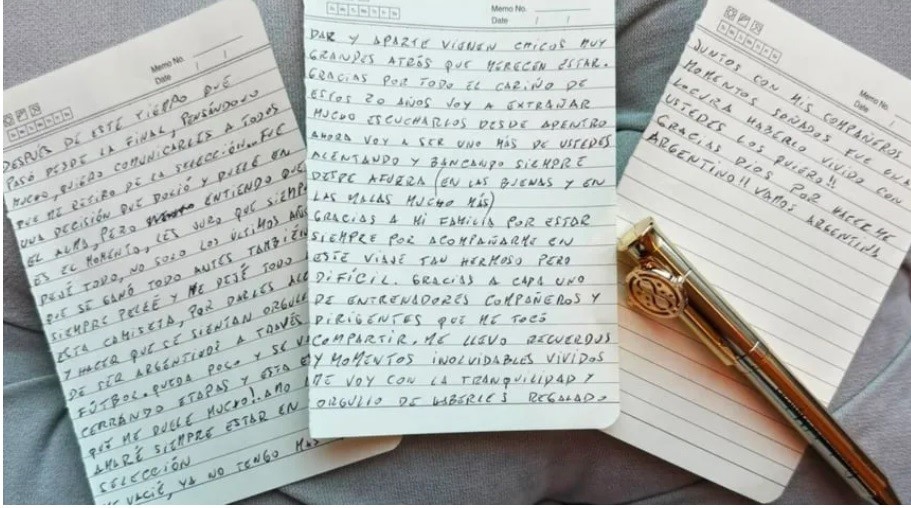 Memo No.
Date / /
DESPUÉS DE ESTE TIEMPO QUE
PASÓ DESDE LA FINAL, PENSÁNDOLO
MUCHO, QUIERO COMUNICARLES A TODOS
QUE ME RETIRO DE LA SELECCIÓN.. FUE
UNA DECISIÓN QUE DOLIÓ Y DUELE EN
EL ALMA, PERO ENTIENDO QUE
ES EL MOMENTO, LES JURO QUE SIEMPRE
DEJÉ TODO, NO SOLO LOS ÚLTIMOS AÑOS
QUE SE GANÓ TODO ANTES TAMBIÉN
SIEMPRE PELEÉ Y ME DEJÉ TODO
ESTA CAMISETA, POR DARLES
Y HACER QUE SE SIENTAN
DE SER ARGENTINOS A TRAVÉS
FÚTBOL. QUEDA POCO Y SE
CERRANDO ETAPAS Y ESTA
QUE ME DUELE MUCHO!. AMO
AMARÉ SIEMPRE ESTAR EN
SELECCIÓN
ME VACIÉ, YA NO TENGO MAS
Memo No.
Date / /
DAR Y APARTE VIENEN CHICOS MUY
GRANDES ATRÁS QUE MERECEN ESTAR.
GRACIAS POR TODO EL CARIÑO DE
ESTOS 20 AÑOS VOY A EXTRAÑAR
MUCHO ESCUCHARLOS DESDE ADENTRO
AHORA VOY A SER UNO MÁS DE USTEDES
ALENTANDO Y BANCANDO SIEMPRE
DESDE AFUERA (EN LAS BUENAS Y EN
LAS MALAS MUCHO MÁS)
GRACIAS A MI FAMILIA POR ESTAR
SIEMPRE POR ACOMPAÑARME EN
ESTE VIAJE TAN HERMOSO PERO
DIFÍCIL. GRACIAS A CADA UNO
DE ENTRENADORES COMPAÑEROS Y
DIRIGENTES QUE ME TOCÓ
COMPARTIR. ME LLEVO RECUERDOS
Y MOMENTOS INOLVIDABLES VIVIDOS
ME VOY CON LA TRANQUILIDAD Y
ORGULLO DE HABERLES REGALADO
Memo No.
Date / /
JUNTOS CON MIS COMPAÑEROS
MOMENTOS SOÑADOS FUE UNA
LOCURA HABERLO VIVIDO CON
USTEDES LOS QUIERO!!
GRACIAS DIOS POR HACERME
ARGENTINO!! VAMOS ARGENTINA